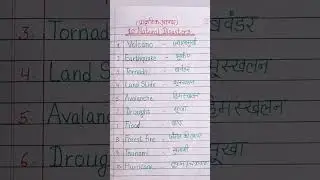 (प्राकृतिक आपदा)
10 Natural Disasters
1. Volcano - ज्वालामुखी
2. Earthquake - भूकंप
3. Tornado - बवंडर
4. Land Slide - भूस्खलन
5. Avalanche - हिमस्खलन
6. Drought - सूखा
7. Flood - बाढ़
8. Forest fire - जंगल की आग
9. Tsunami - सुनामी
10. Hurricane -
3. Tornad
4. Land S
5. Avalan
6. Droug
बवंडर
भूस्खलन
हिमस्खलन
सूखा